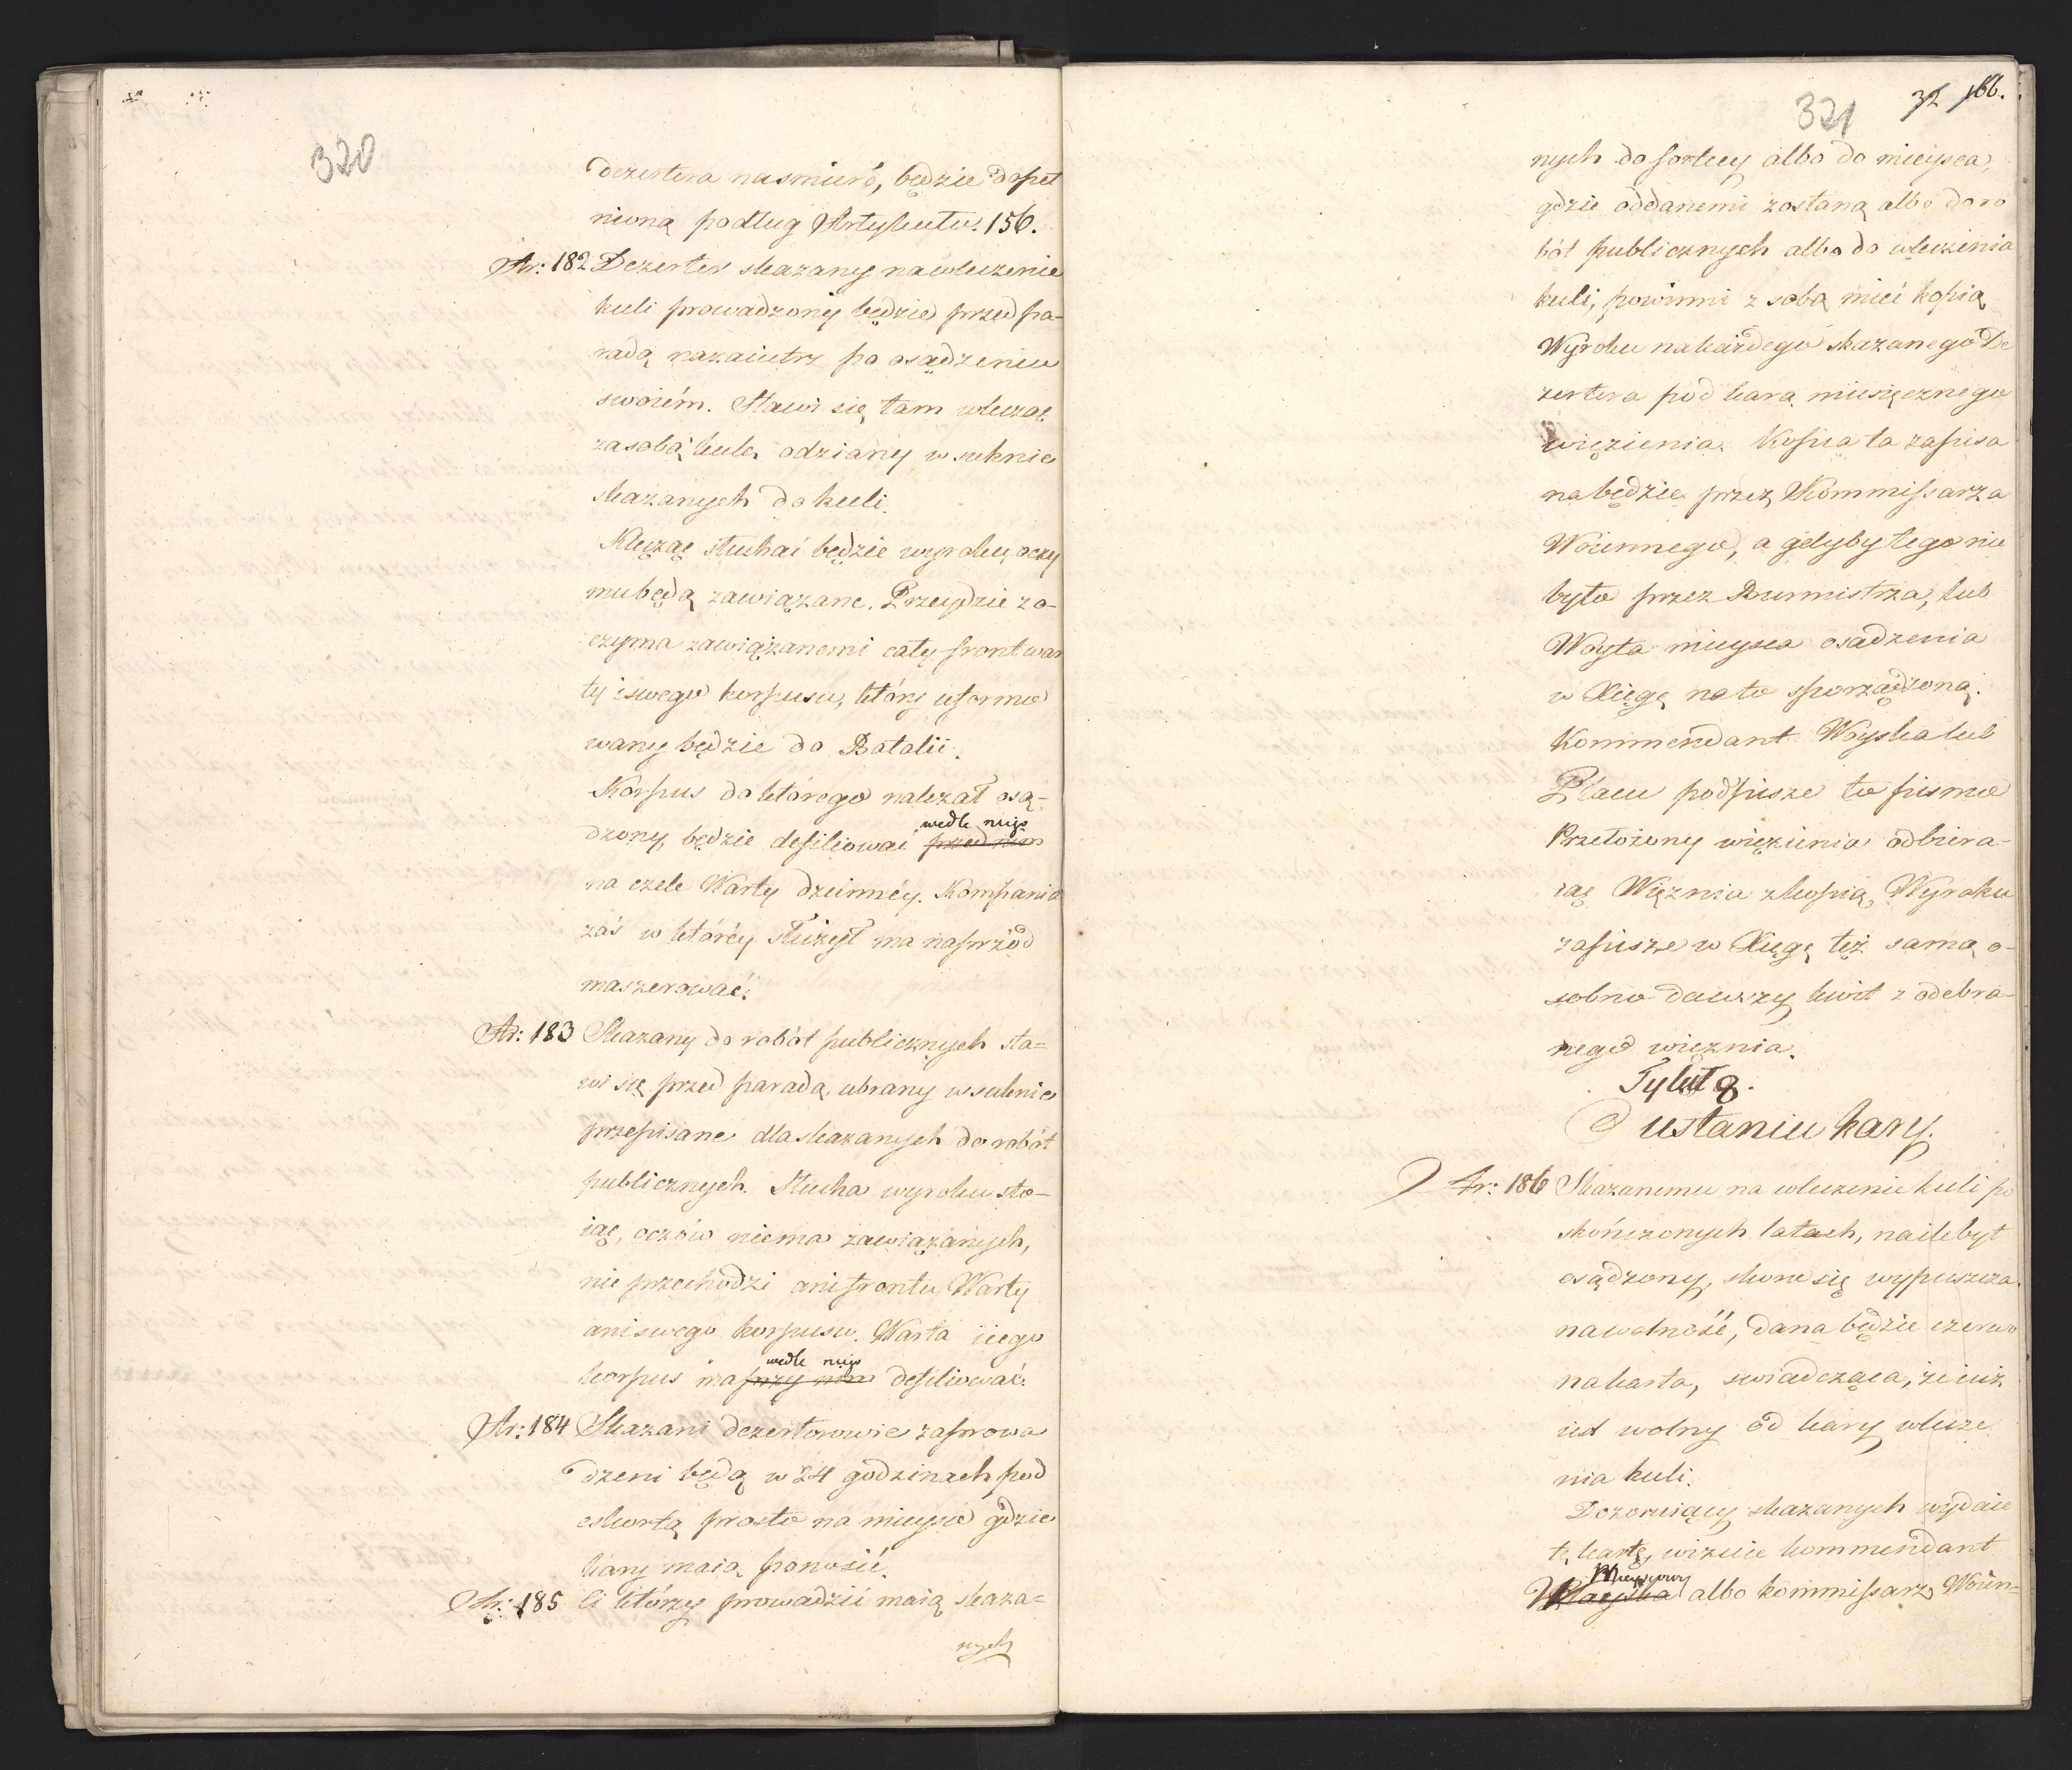 320
dezertera naśmierć, będzie dopeł
nioną podług Artykułu. 156.
Ar: 182 Dezerter skazany nawleczenie
kuli prowadzony będzie przed pa-
radą nazaiutrz po osądzeniu
swoiém. Stawi się tam wlecząc
zasobą kulę, odziany w suknie
skazanych do kuli.
Klęcząc słuchać będzie wyroku, oczy
mu będą zawiązane. Przeydzie z o-
czyma zawiązanemi cały front war
ty i swego korpusu, który uformo
wany będzie do Batalii.
Korpus do którego należał osą-
dzony, będzie defilować wedle niego przed nim
na czele Warty dzienney. Kompania
zaś w któréy służył ma naprzód
maszerować.
Ar: 183 Skazany do robót publicznych sta=
wi się przed paradą, ubrany w suknie
przepisane dla skazanych do robót
publicznych. Słucha wyroku sto-
iąc, oczów niema zawiązanych,
nie przechodzi ani frontu Warty
ani swego korpusu. Warta i iego
korpus ma wedle niego przy nim defilować.
Ar: 184 Skazani dezertorowie zaprowa
dzeni będą w 24 godzinach pod
eskortą prosto na mieysce gdzie
kary maią ponosić.
Ar: 185 Ci którzy prowadzić maią skaza=
nych
321 32 166.
nych do fortecy albo do mieysca,
gdzie oddanemi zostaną albo do ro
bót publicznych albo do włeczenia
kuli, powinni z sobą mieć kopią
Wyroku na każdego skazanego De
zertera pod karą miesięcznego
więzienia. Kopia ta zapisa
na będzie przez Kommissarza
Woiennego, a gdyby tego nie
było przez Burmistrza, lub
Woyta mieysca osadzenia
w Xięgę na to sporządzoną.
Kommendant Woyska lub
Placu podpisze to pismo
Przełożony więzienia odbiera-
iąc Więznia z kopią, Wyroku
zapisze w Xięgę też samą o-
sobno dawszy kwit z odebra-
nego więznia.
Tytuł 8.
O ustaniu kary.
Ar: 186 Skazanemu na wleczenie kuli po
skończonych latach, na ile był
osądzony, skoro się wypuszcza
na wolność, dana będzie czerwo
na karta, swiadcząca, że iuż
iest wolny od kary wlecze
nia kuli.
Dozoruiący skazanych wydaie
tę kartę, wizuie kommendant
Mieyscowy Woyska albo kommissarz Woien=